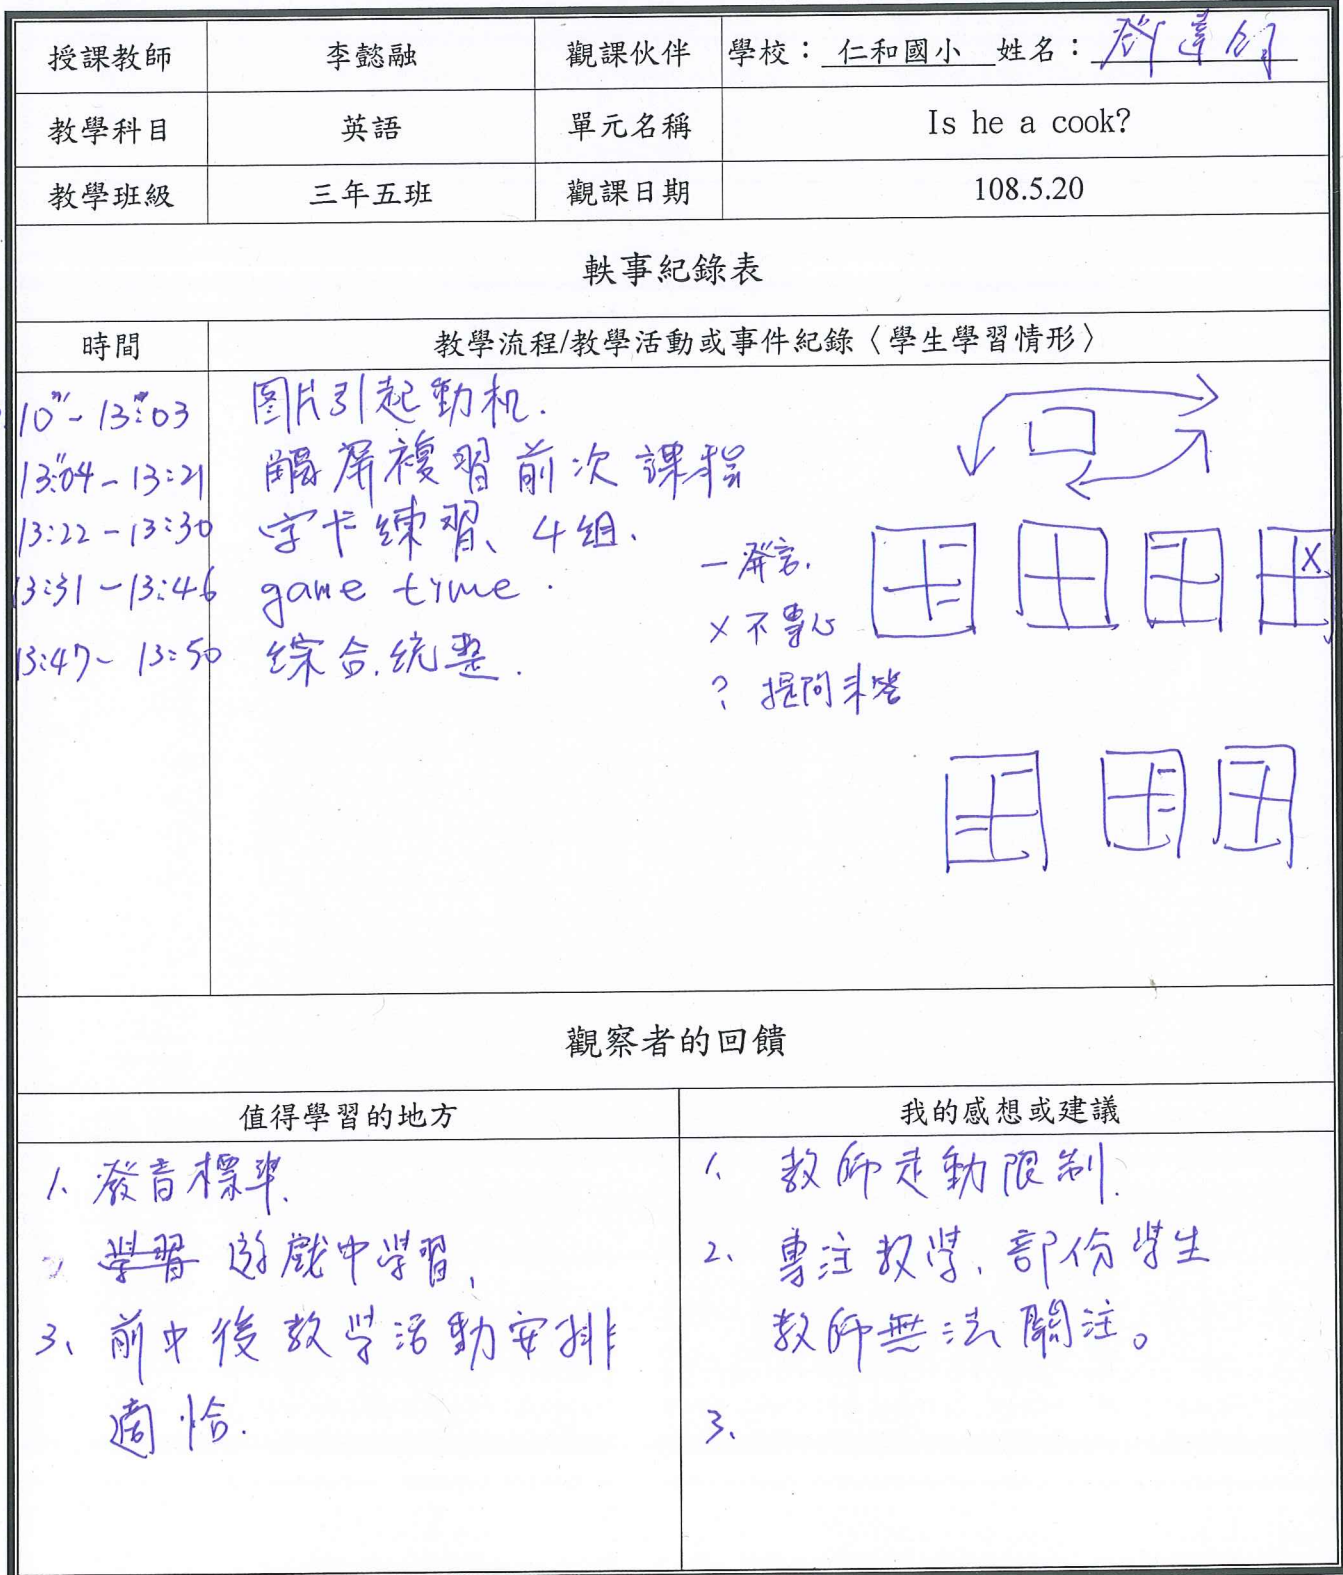 授課教師 李懿融 觀課伙伴 學校：仁和國小 姓名：
教學科目 英語 單元名稱 Is he a cook?
教學班級 三年五班 觀課日期 108.5.20
軼事紀錄表
時間 教學流程/教學活動或事件紀錄〈學生學習情形〉
10"-13:03 图片引起動机.
13:04-13:21 觸屏複習前次課程
13:22-13:30 字卡練習、4組.
13:31-13:46 game time.
13:47-13:50 綜合.統整.
一 發言.
X 不專心
? 提問未答
X
觀察者的回饋
值得學習的地方 我的感想或建議
1. 發音標準.
學習 遊戲中學習,
3、前中後教學活動安排
適恰.
1. 教師走動限制.
2、專注教學、部份學生
教師無法關注。
3、